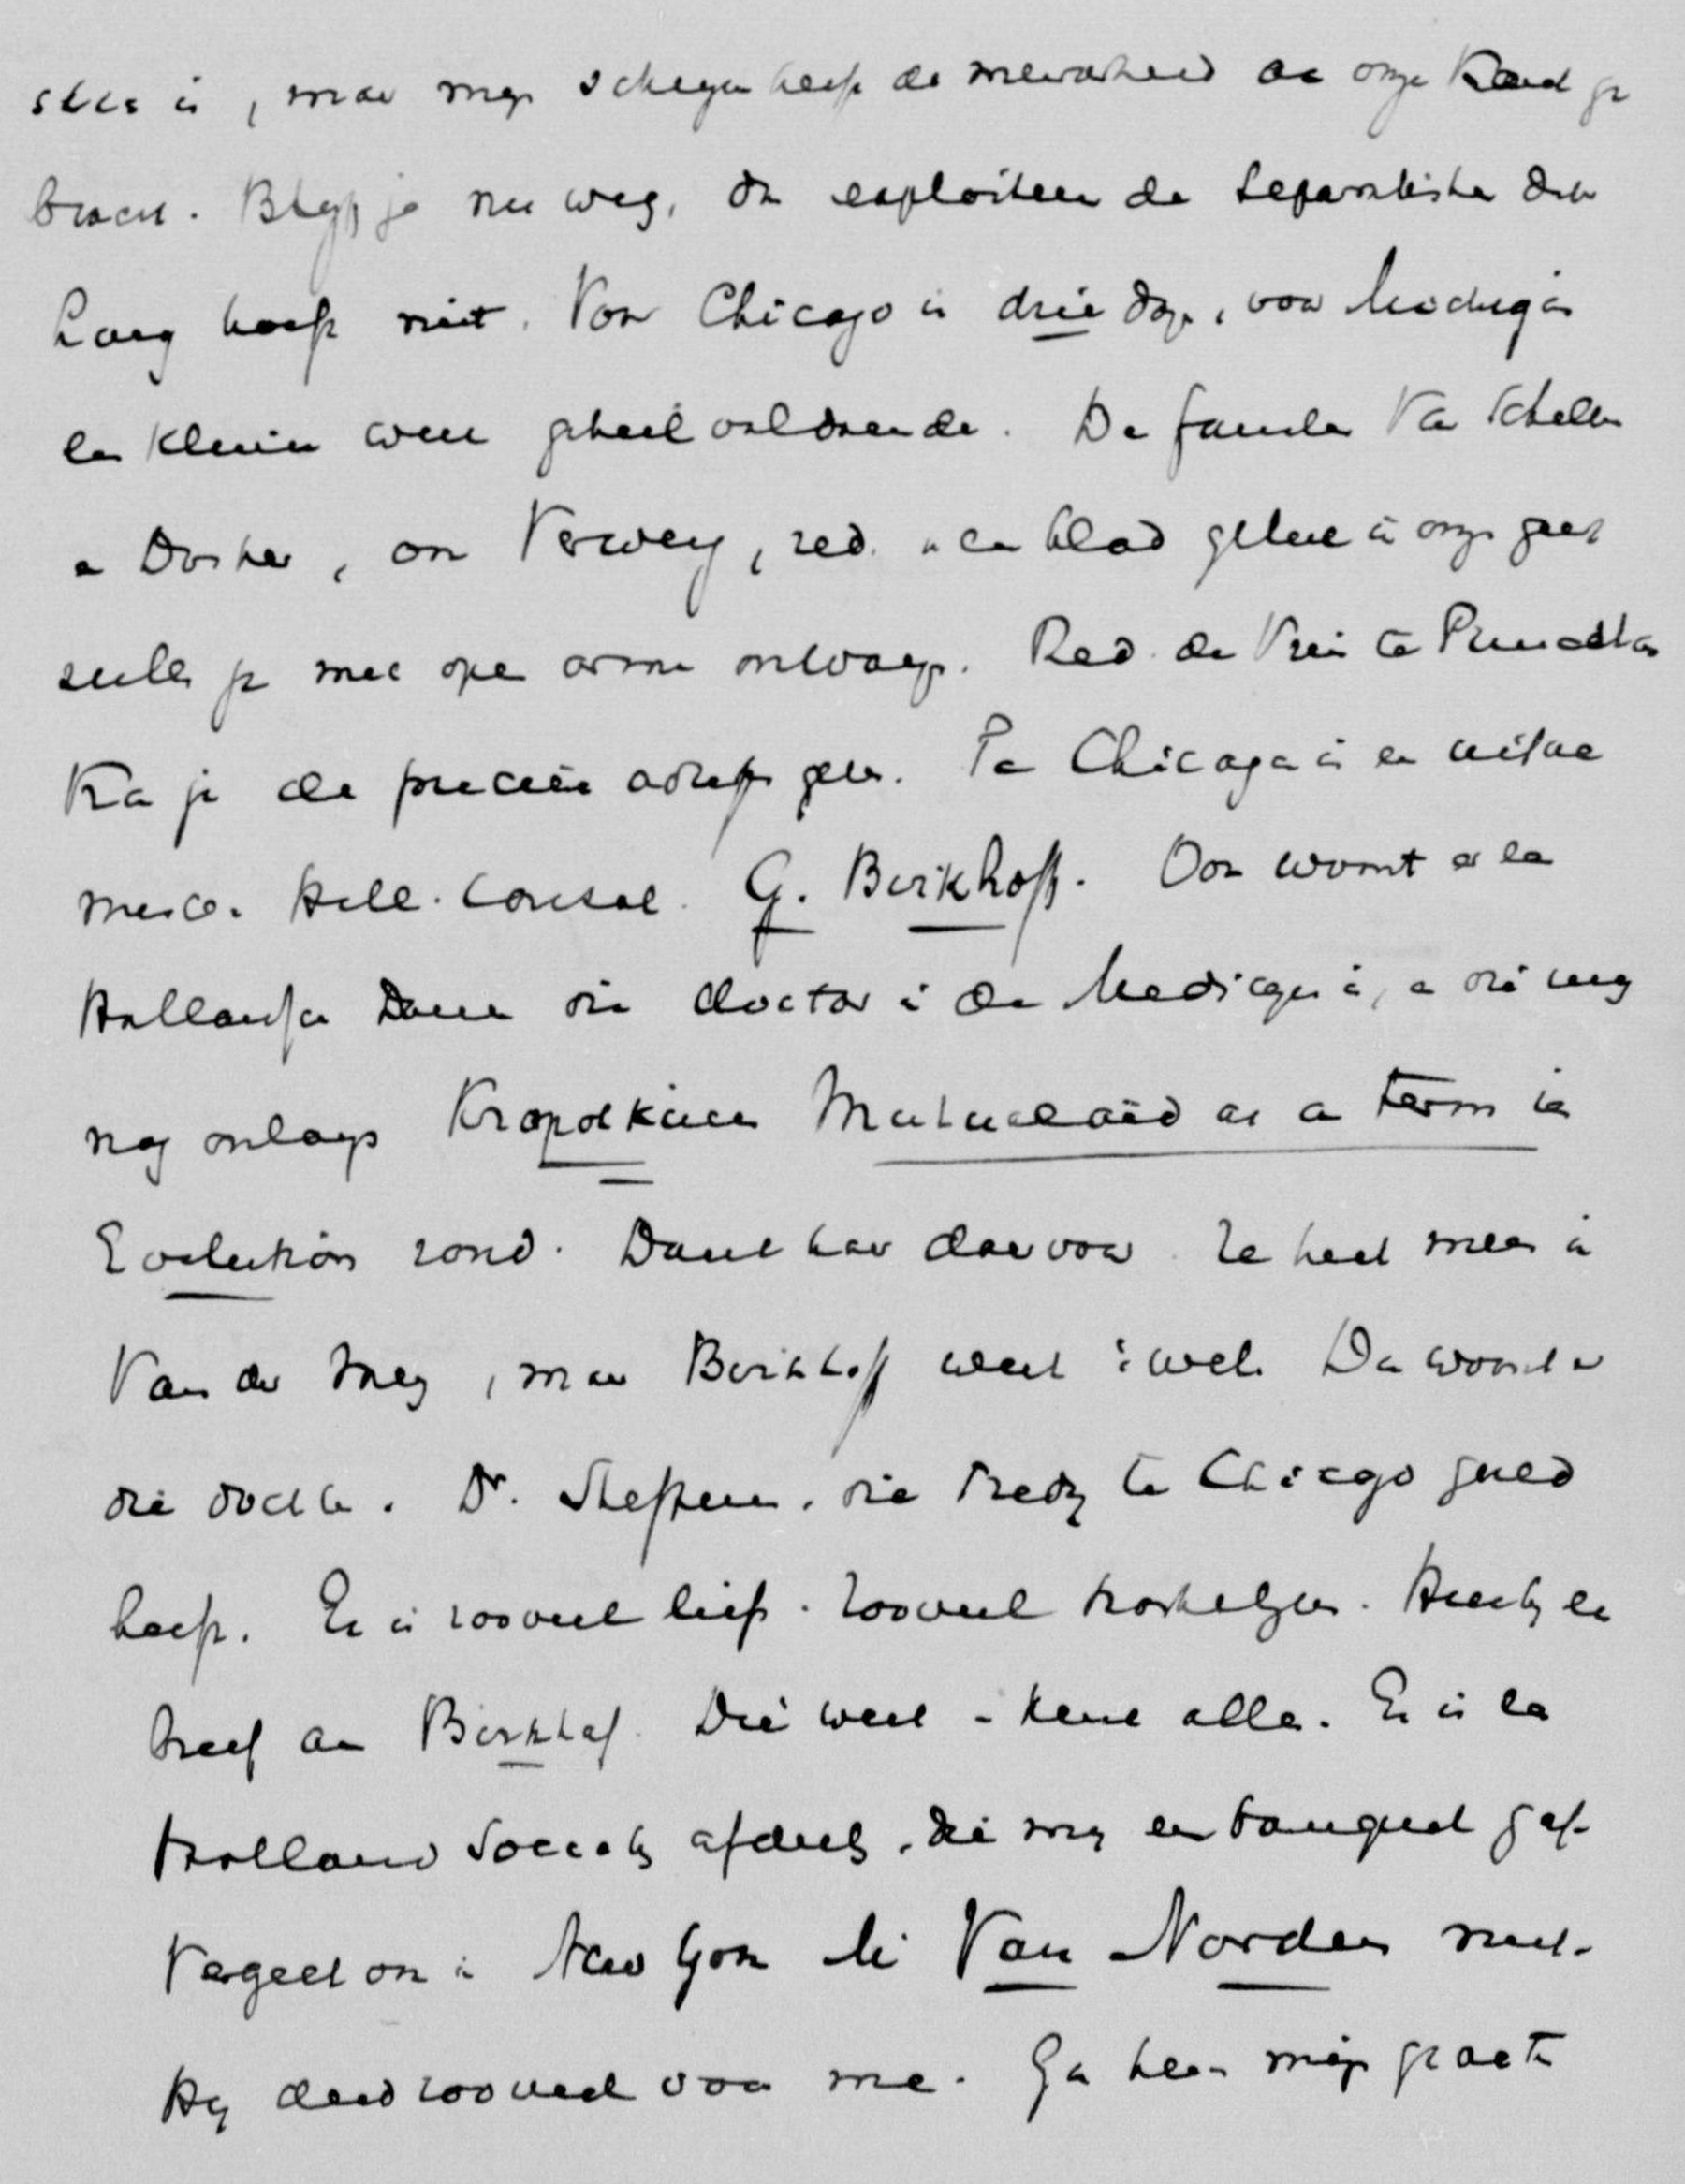 is, maar mijn schrijven heeft de meerderheid aan onze kant ge
bracht. Blijf je nu weg, dan exploiteeren de Separatisten dat
Lang hoeft niet. Voor Chicago is drie dagen, voor Michigan
een kleine week geheel voldoende. De familie Van Schelven
en Dosker, ook Verwey, red. van een blad geheel in onze geest
zullen je met open armen ontvangen. Red. de Vries te Princeton
Kan je de precieze adressen geven. Te Chicago is een uitne
mende Holl. Consul. G. Birkhoff. Ook woont er een
Hollandsche Dame die doctor in de Medicijnen is, en die mij
nog onlangs Kropotkine's Mutual aid as a term in
Evolution zond. Dank haar daarvoor. Ze heet meen ik
Van der Mey, maar Birkhoff weet 't wel. Dan woont er
die dochter. Dr. Steffens, die Fredy te Chicago goed
heeft. Er is zooveel liefs. Zooveel hartelijks. Hecht je
breed aan Birkhoff. Die weet en kent alles. Er is een
Holland Society afdeeling, die mij een banquet gaf.
Vergeet ook in New York Mr Van Norden niet.
Hij deed zooveel voor me. Ga hem mijn groeten